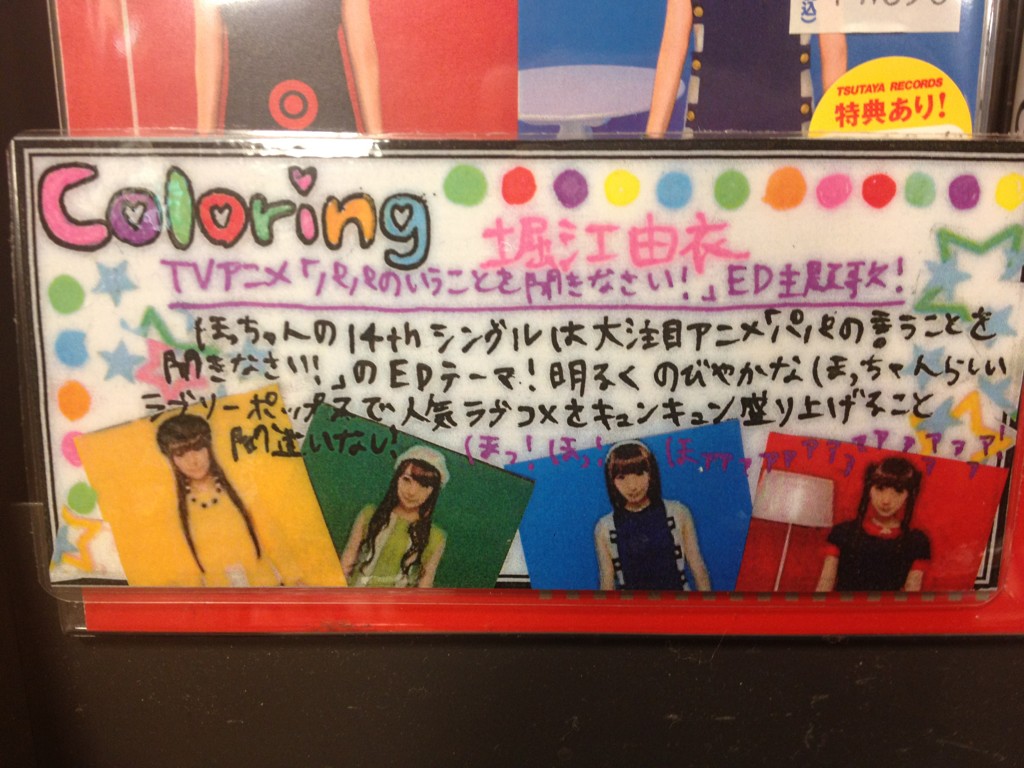 TSUTAYA RECORDS
特典あり!
Coloring
堀江由衣
TVアニメ「パパのいうことを聞きなさい!」ED主題歌!
ほっちゃんの14thシングルは大注目アニメ「パパの言うことを
聞きなさい!」のEDテーマ!明るくのびやかなほっちゃんらしい
ラブリーポップスで人気ラブコメをキュンキュン盛り上げること
間違いない!
ほっ!ほっ!ほ